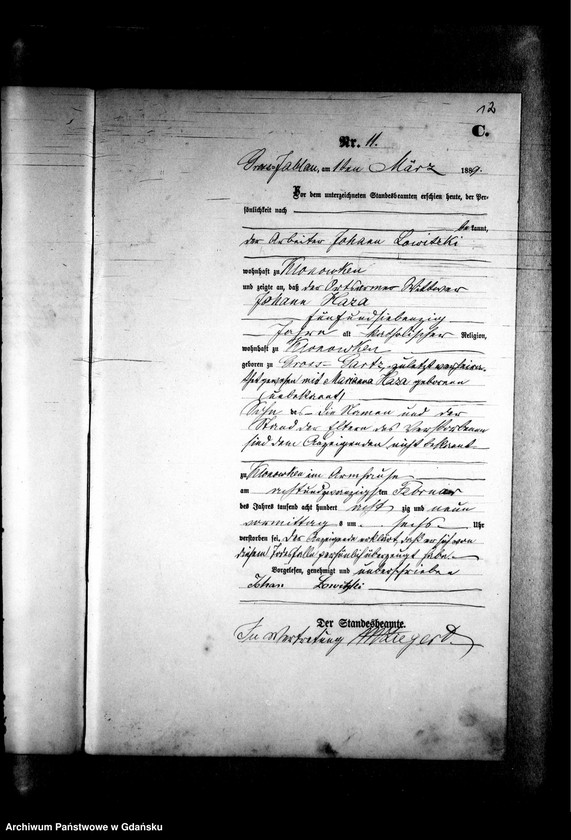 12
C.
Nr. 11.
Gross-Jablau, am 1ten März 1889.
Vor dem unterzeichneten Standesbeamten erschien heute, der Per-
sönlichkeit nach
bekannt,
der Arbeiter Johann Lowitzki
wohnhaft zu Klonowken
und zeigte an, daß der Ortsarme Wittwer
Johann Kaza
fünfundsiebenzig
Jahre alt katholischer Religion,
wohnhaft zu Klonowken
geboren zu Gross-Gartz, zuletzt verheira-
thet gewesen mit Marianna Kaza geborenen
(unbekannt)
Sohn – die Namen und der
Stand der Eltern des Verstorbenen
sind dem Anzeigenden nicht bekannt
zu Klonowken im Armhause
am achtundzwanzigsten Februar
des Jahres tausend acht hundert achtzig und neun
vormittags um sechs Uhr
verstorben sei. Der Anzeigende erklärt, daß er sich von
diesem Todesfalle persönlich überzeugt habe.
Vorgelesen, genehmigt und unterschrieben
Johan Lowitzki
Der Standesbeamte.
In Vertretung
Archiwum Państwowe w Gdańsku